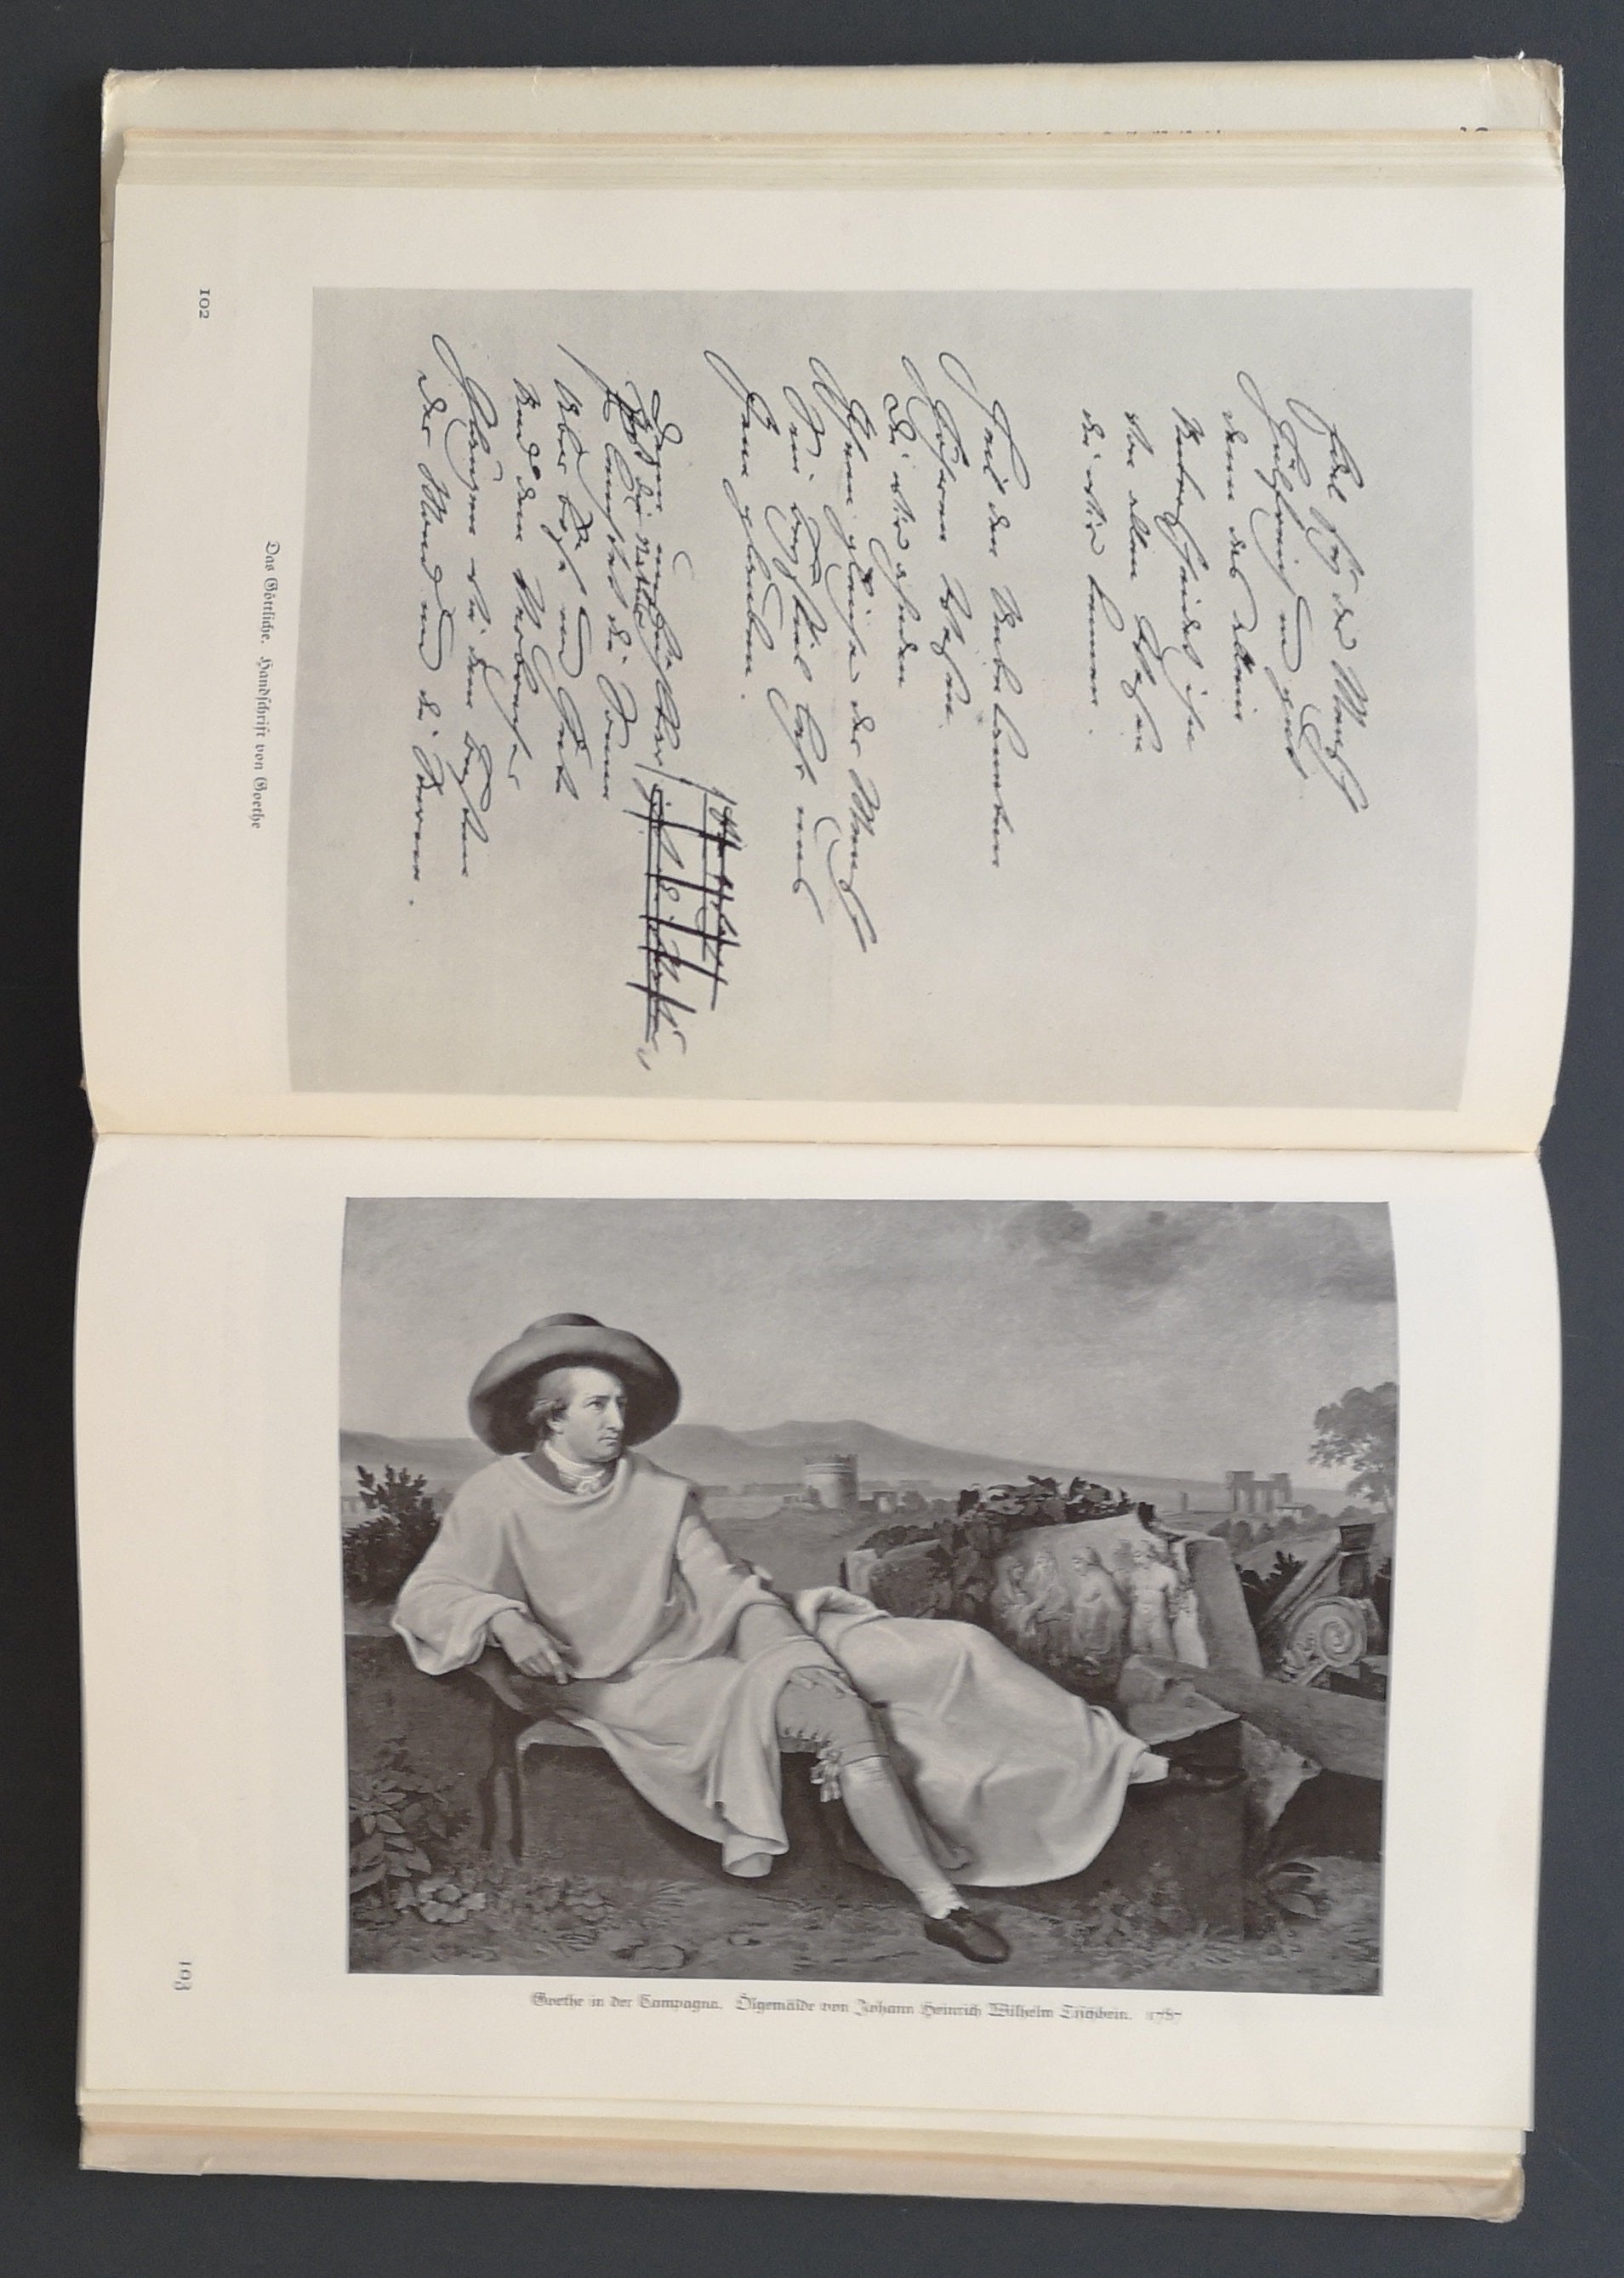 Edel sey der Mensch
Hülfreich und gut
denn das allein
Unterscheidet ihn
Von allen Wesen
die wir kennen.
Heil den Unbekannten
Höheren Wesen
Die wir ahnden
Ihnen gleiche der Mensch
Sein beyspiel lehr uns
Jene glauben.
Denn
Ist die natur
Es leuchtet die Sonne
Über böse und Gute
Und dem Verbrecher
Glänzen wie dem besten
Der Mond und die Sterne.
Das Göttliche. Handschrift von Goethe
102
Goethe in der Campagna. Ölgemälde von Johann Heinrich Wilhelm Tischbein. 1787
103